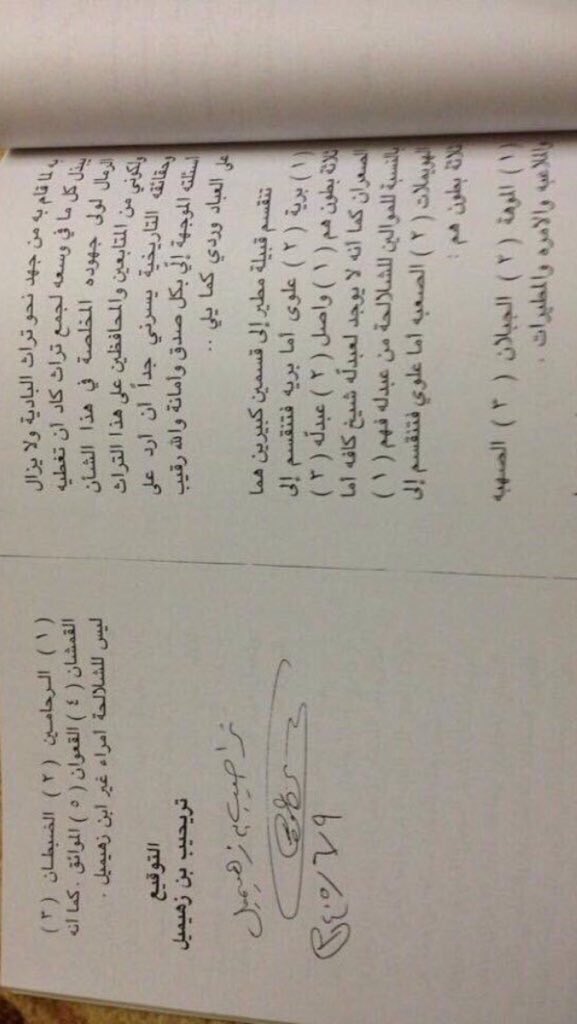 به لما قام به من جهد نحو تراث البادية ولا يزال
يبذل كل ما في وسعه لجمع تراث كاد ان تغطيه
الرمال لولى جهوده المخلصة في هذا الشأن
ولكوني من المتابعين والمحافظين على هذا التراث
وحقائقه التاريخية يسرني جداً ان ارد على
اسئلته الموجهة إلي بكل صدق وامانة والله رقيب
على العباد وردي كما يلي ..
تنقسم قبيلة مطير إلى قسمين كبيرين هما
(١) برية (٢) علوى اما بريه فتنقسم إلى
ثلاثة بطون هم (١) واصل (٢) عبدله (٣)
الصعران كما انه لا يوجد لعبدله شيخ كافه اما
بالنسبة للموالين للشلالحة من عبدله فهم (١)
الهويملات (٢) الصعبه اما علوي فتنقسم إلى
ثلاثة بطون هم :
(١) الموهة (٢) الجبلان (٣) الصهبه
والملاعبه والامره والمطيرات .
(١) الرحامين (٢) الضبطان (٣)
القمشان (٤) القعوان (٥) المواثق . كما انه
ليس للشلالحة امراء غير ابن زهيميل .
التوقيع
تريحيب بن زهيميل
تراحيب بن زهيميل